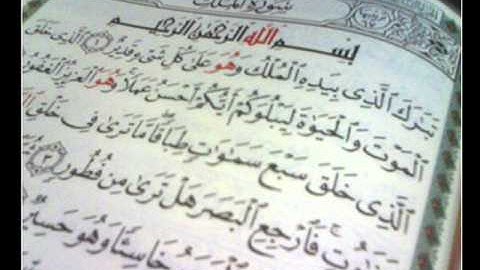 سورة الملك
بسم الله الرحمن الرحيم
تَبَٰرَكَ الَّذِي بِيَدِهِ الْمُلْكُ وَهُوَ عَلَىٰ كُلِّ شَيْءٍ قَدِيرٌ ١ الَّذِي خَلَقَ
الْمَوْتَ وَالْحَيَوٰةَ لِيَبْلُوَكُمْ أَيُّكُمْ أَحْسَنُ عَمَلًا وَهُوَ الْعَزِيزُ الْغَفُورُ
الَّذِي خَلَقَ سَبْعَ سَمَٰوَٰتٍ طِبَاقًا مَّا تَرَىٰ فِي خَلْقِ
فَارْجِعِ الْبَصَرَ هَلْ تَرَىٰ مِن فُطُورٍ ٣
خَاسِئًا وَهُوَ حَسِيرٌ